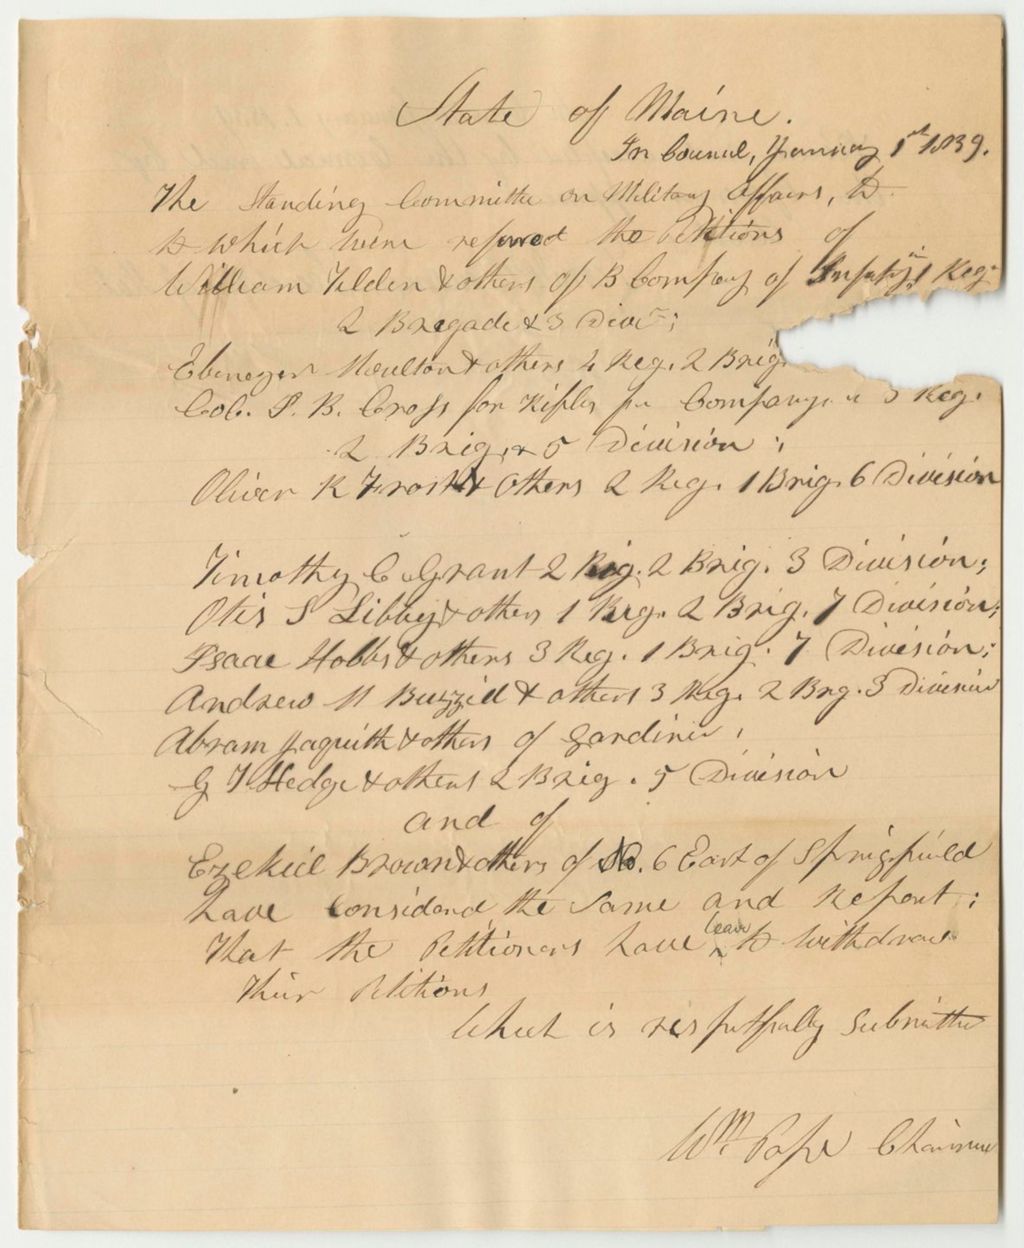 State of Maine.
In Council, January 1st 1839.
The Standing Committee on Military Affairs, to
to which were referred the Petitions of
William Tilden & others of B Company of Infantry, 1 Reg.
2 Brigade & 3 Divi;
Ebenezer Moulton & others 4 Reg. 2 Brig.
Col. S. B. Cross for Rifle Company. 3 Reg.
2 Brig. & 5 Division;
Oliver K Frost & others 2 Reg. 1 Brig. 6 Division
Timothy C Grant 2 Reg. 2 Brig. 3 Division;
Otis S Libby & others 1 Reg. 2 Brig. 7 Division;
Isaac Hobbs & others 3 Reg. 1 Brig. 7 Division;
Andrew M Buzzell & others 3 Reg. 2 Brg. 3 Division
Abram Jaquith & others of Gardiner,
G T Hedge & others 2 Brig. 5 Division
and of
Ezekiel Brown & others of No. 6 East of Springfield
have Considered the Same and Report;
That the Petitioners have leave to withdraw
their Petitions
Which is respectfully Submitted
Wm. Pope Chairman